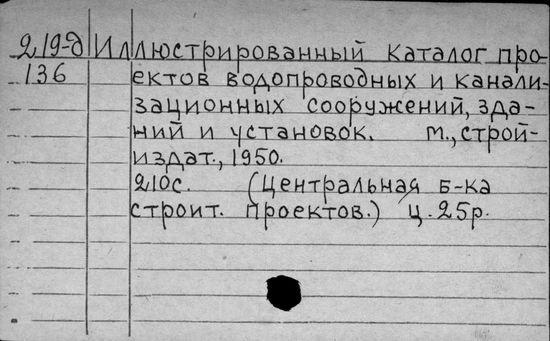 219-д Иллюстрированный каталог про-
136 ектов водопроводных и канали-
зационных сооружений, зда-
ний и установок. М., строй-
издат., 1950.
210с. (Центральная б-ка
строит. проектов.) ц. 25р.